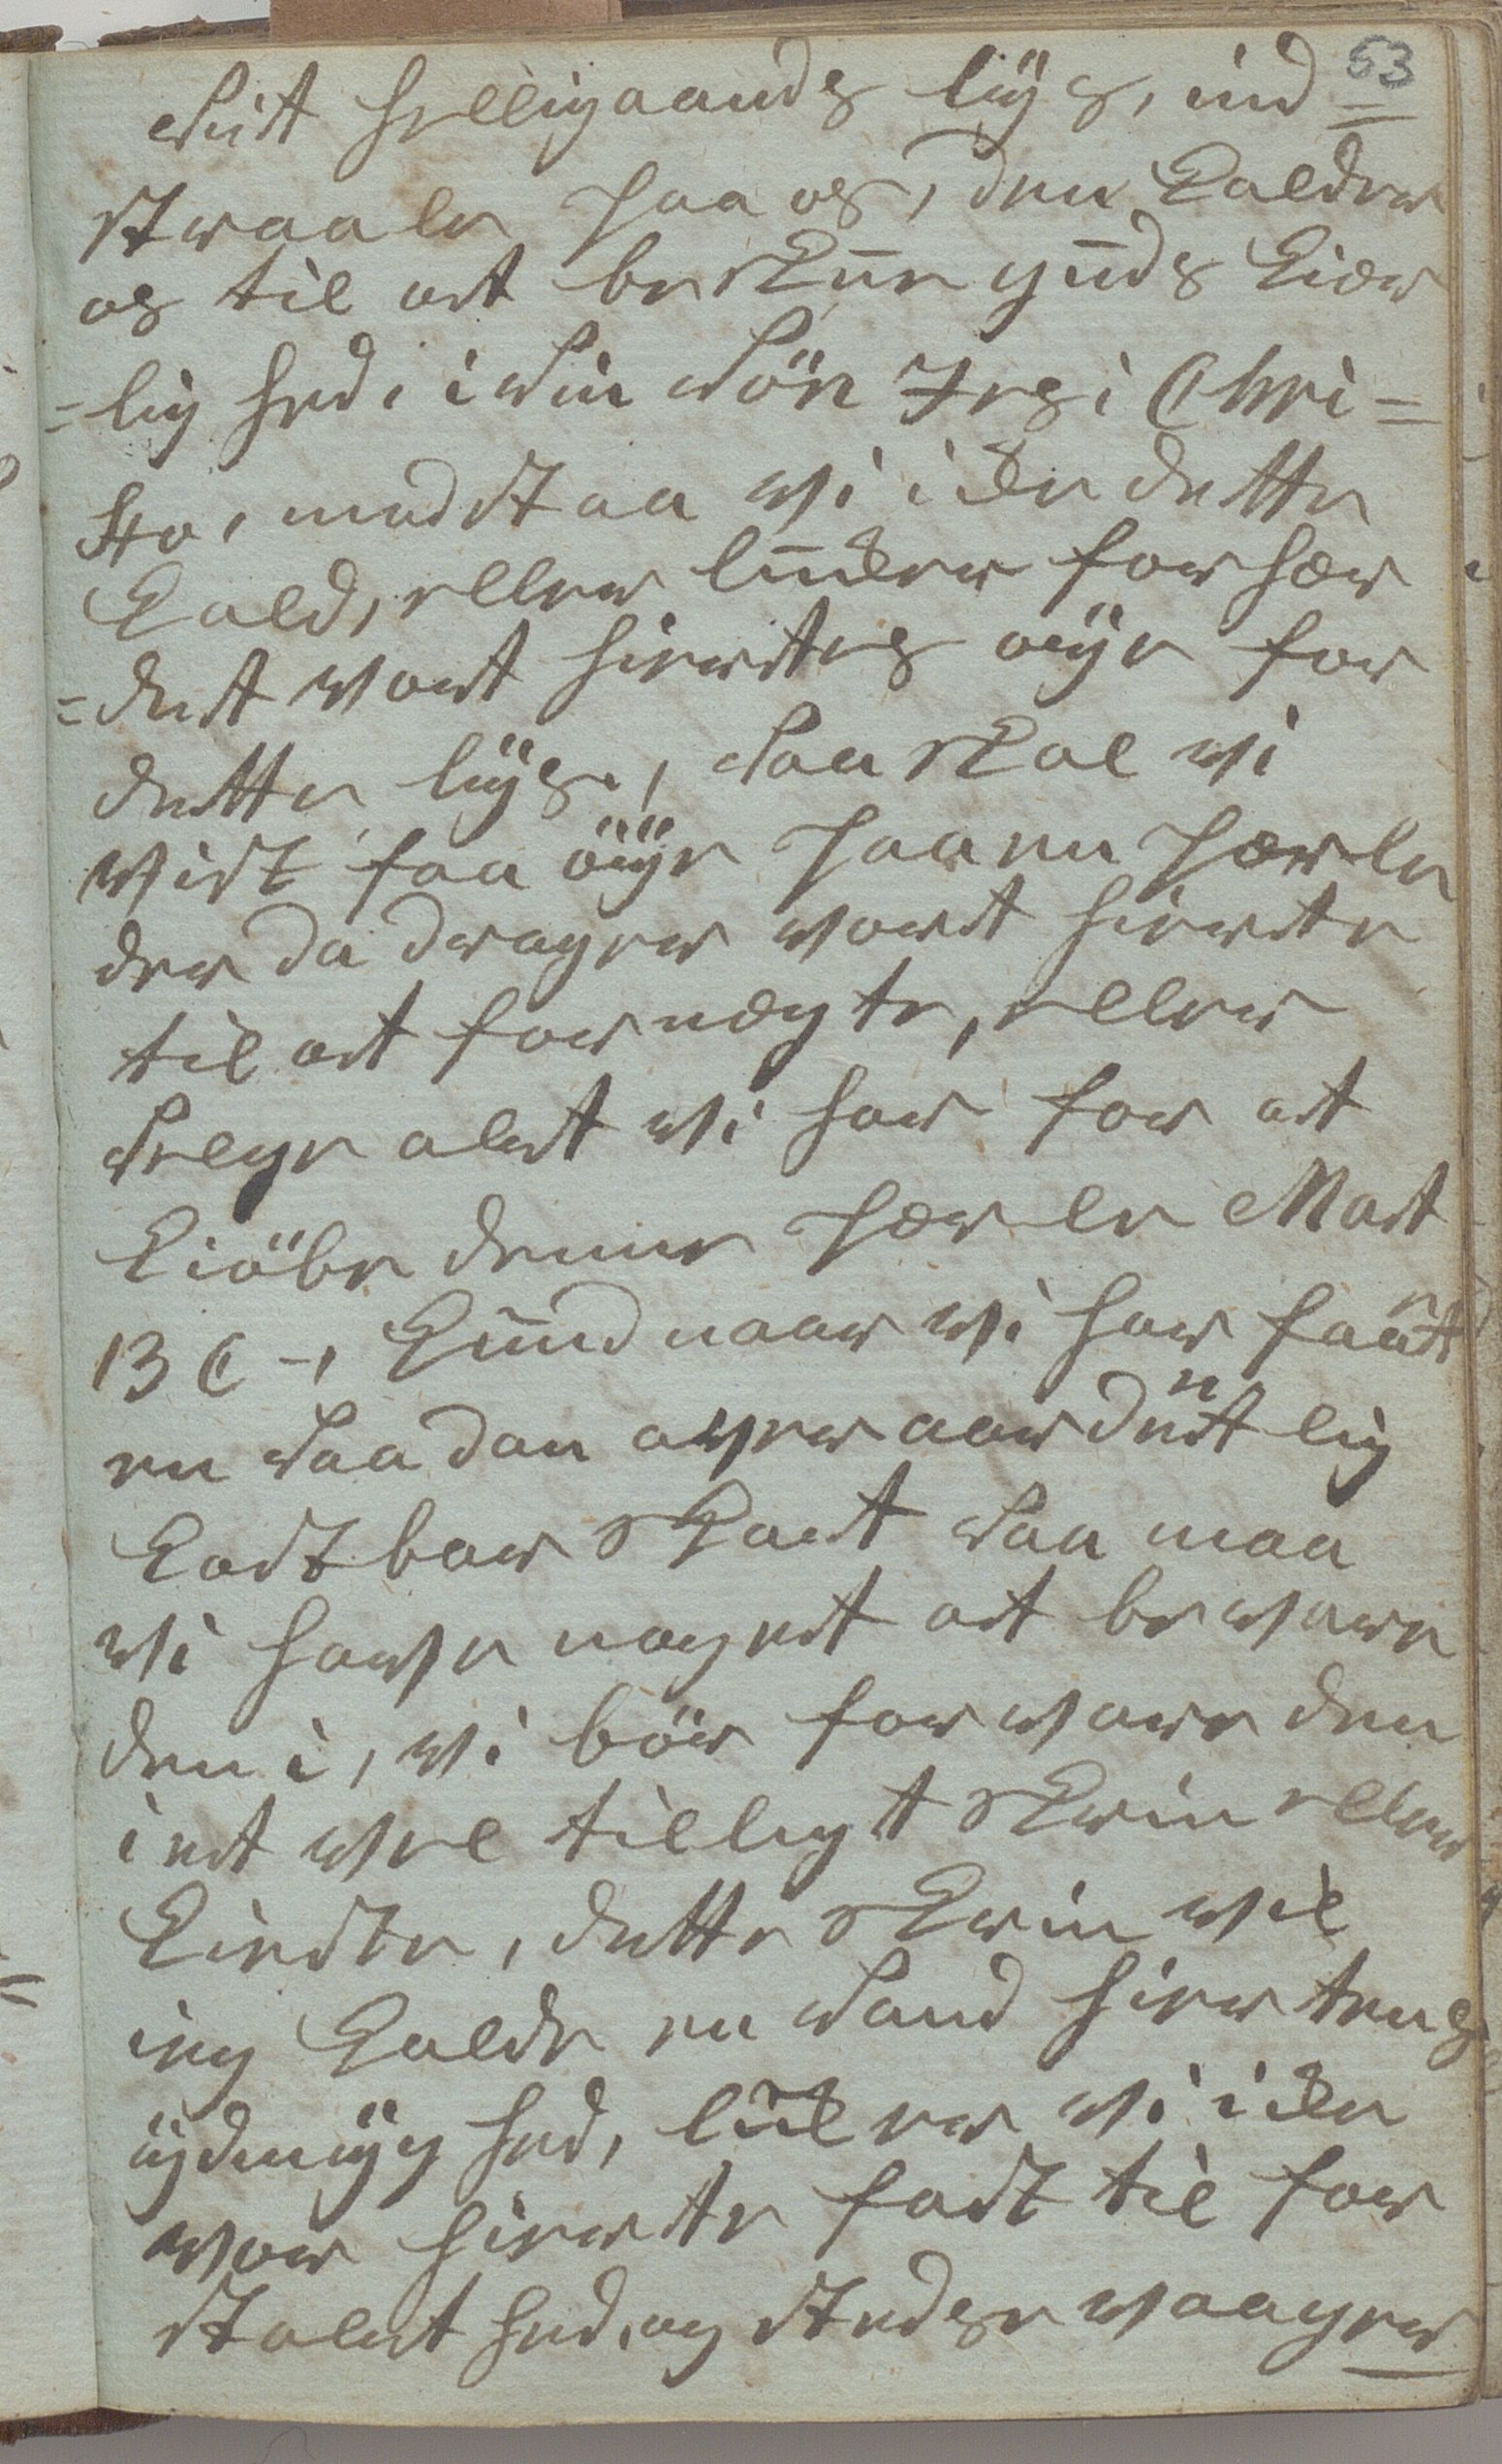 53
sitt helligaands lÿs, ind=
straale paa os, den Kalder
os til at beskue guds Kier
=lig hed, i sin Sön Jesi Chri=
sto, modstaa vi icke dette
Kald, eller lucker forhær
=dett vort hiertes øÿe for
dette lÿs, saa skal vi
vist faa öÿe paa en perle
der da drager vort hierte
til at fornegte, eller
selge alt vi har for at
Kiöbe denne perle Mat
13 C -, Kund naar vi har faaet
en saadan overaardentlig
Kostbar skat saa maa
vi have noget at bevare
den i, vi bör forvare den
i et vel tillugt skrin eller
Kiste, dette skrin vil
ieg Kalde en sand hiertens
ÿdmÿghed, lucker vi icke
vor hierte fast til for
stolthed, og stedse vaager